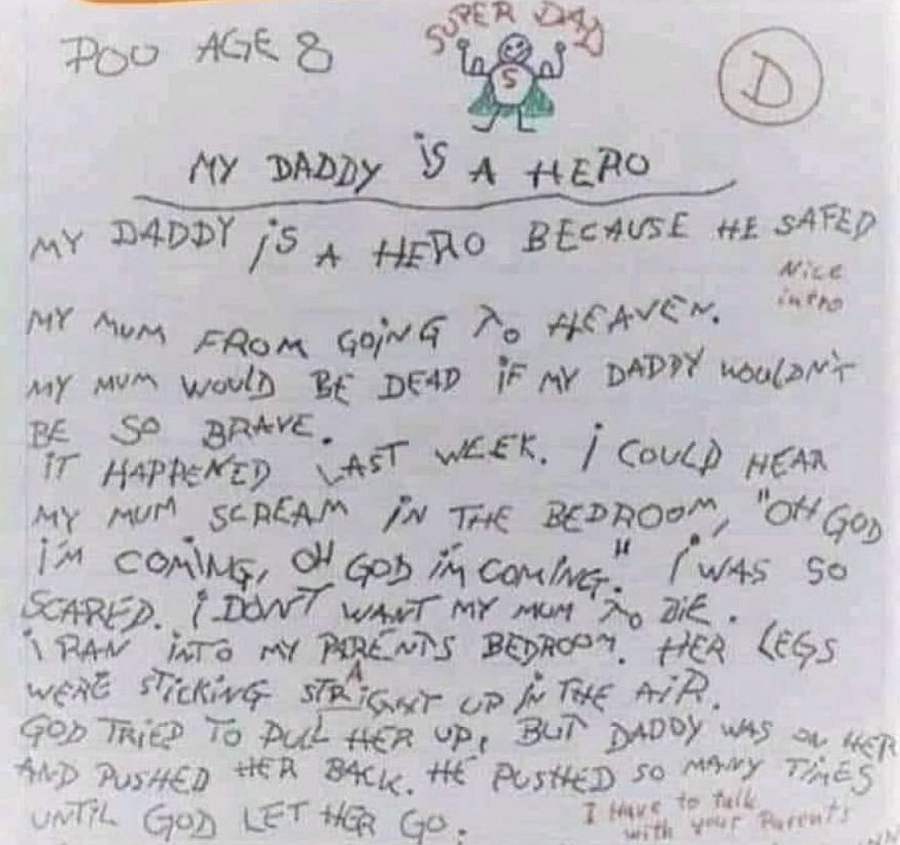 POU AGE 8
SUPER DAD
S
D
MY DADDY iS A HERO
MY DADDY iS A HERO BECAUSE HE SAFED
Nice
intro
MY MUM FROM GOiNG To HEAVEN.
MY MUM WOULD BE DEAD iF MY DADDY WOULDN'T
BE SO BRAVE.
iT HAPPENED LAST WEEK. i COULD HEAR
MY MUM SCREAM iN THE BEDROOM, "OH GOD
i'M COMiNG, OH GOD iM COMiNG." i WAS SO
SCARED. i DON'T WANT MY MUM To DiE.
i RAN iNTO MY PARENTS BEDROOM. HER LEGS
WERE STiCKiNG STRAiGHT UP iN THE AiR.
GOD TRiED TO PULL HER UP, BUT DADDY WAS ON HER
AND PUSHED HER BACK. HE PUSHED SO MANY TiMES
UNTiL GOD LET HER GO.
I Have to talk
with your Parents